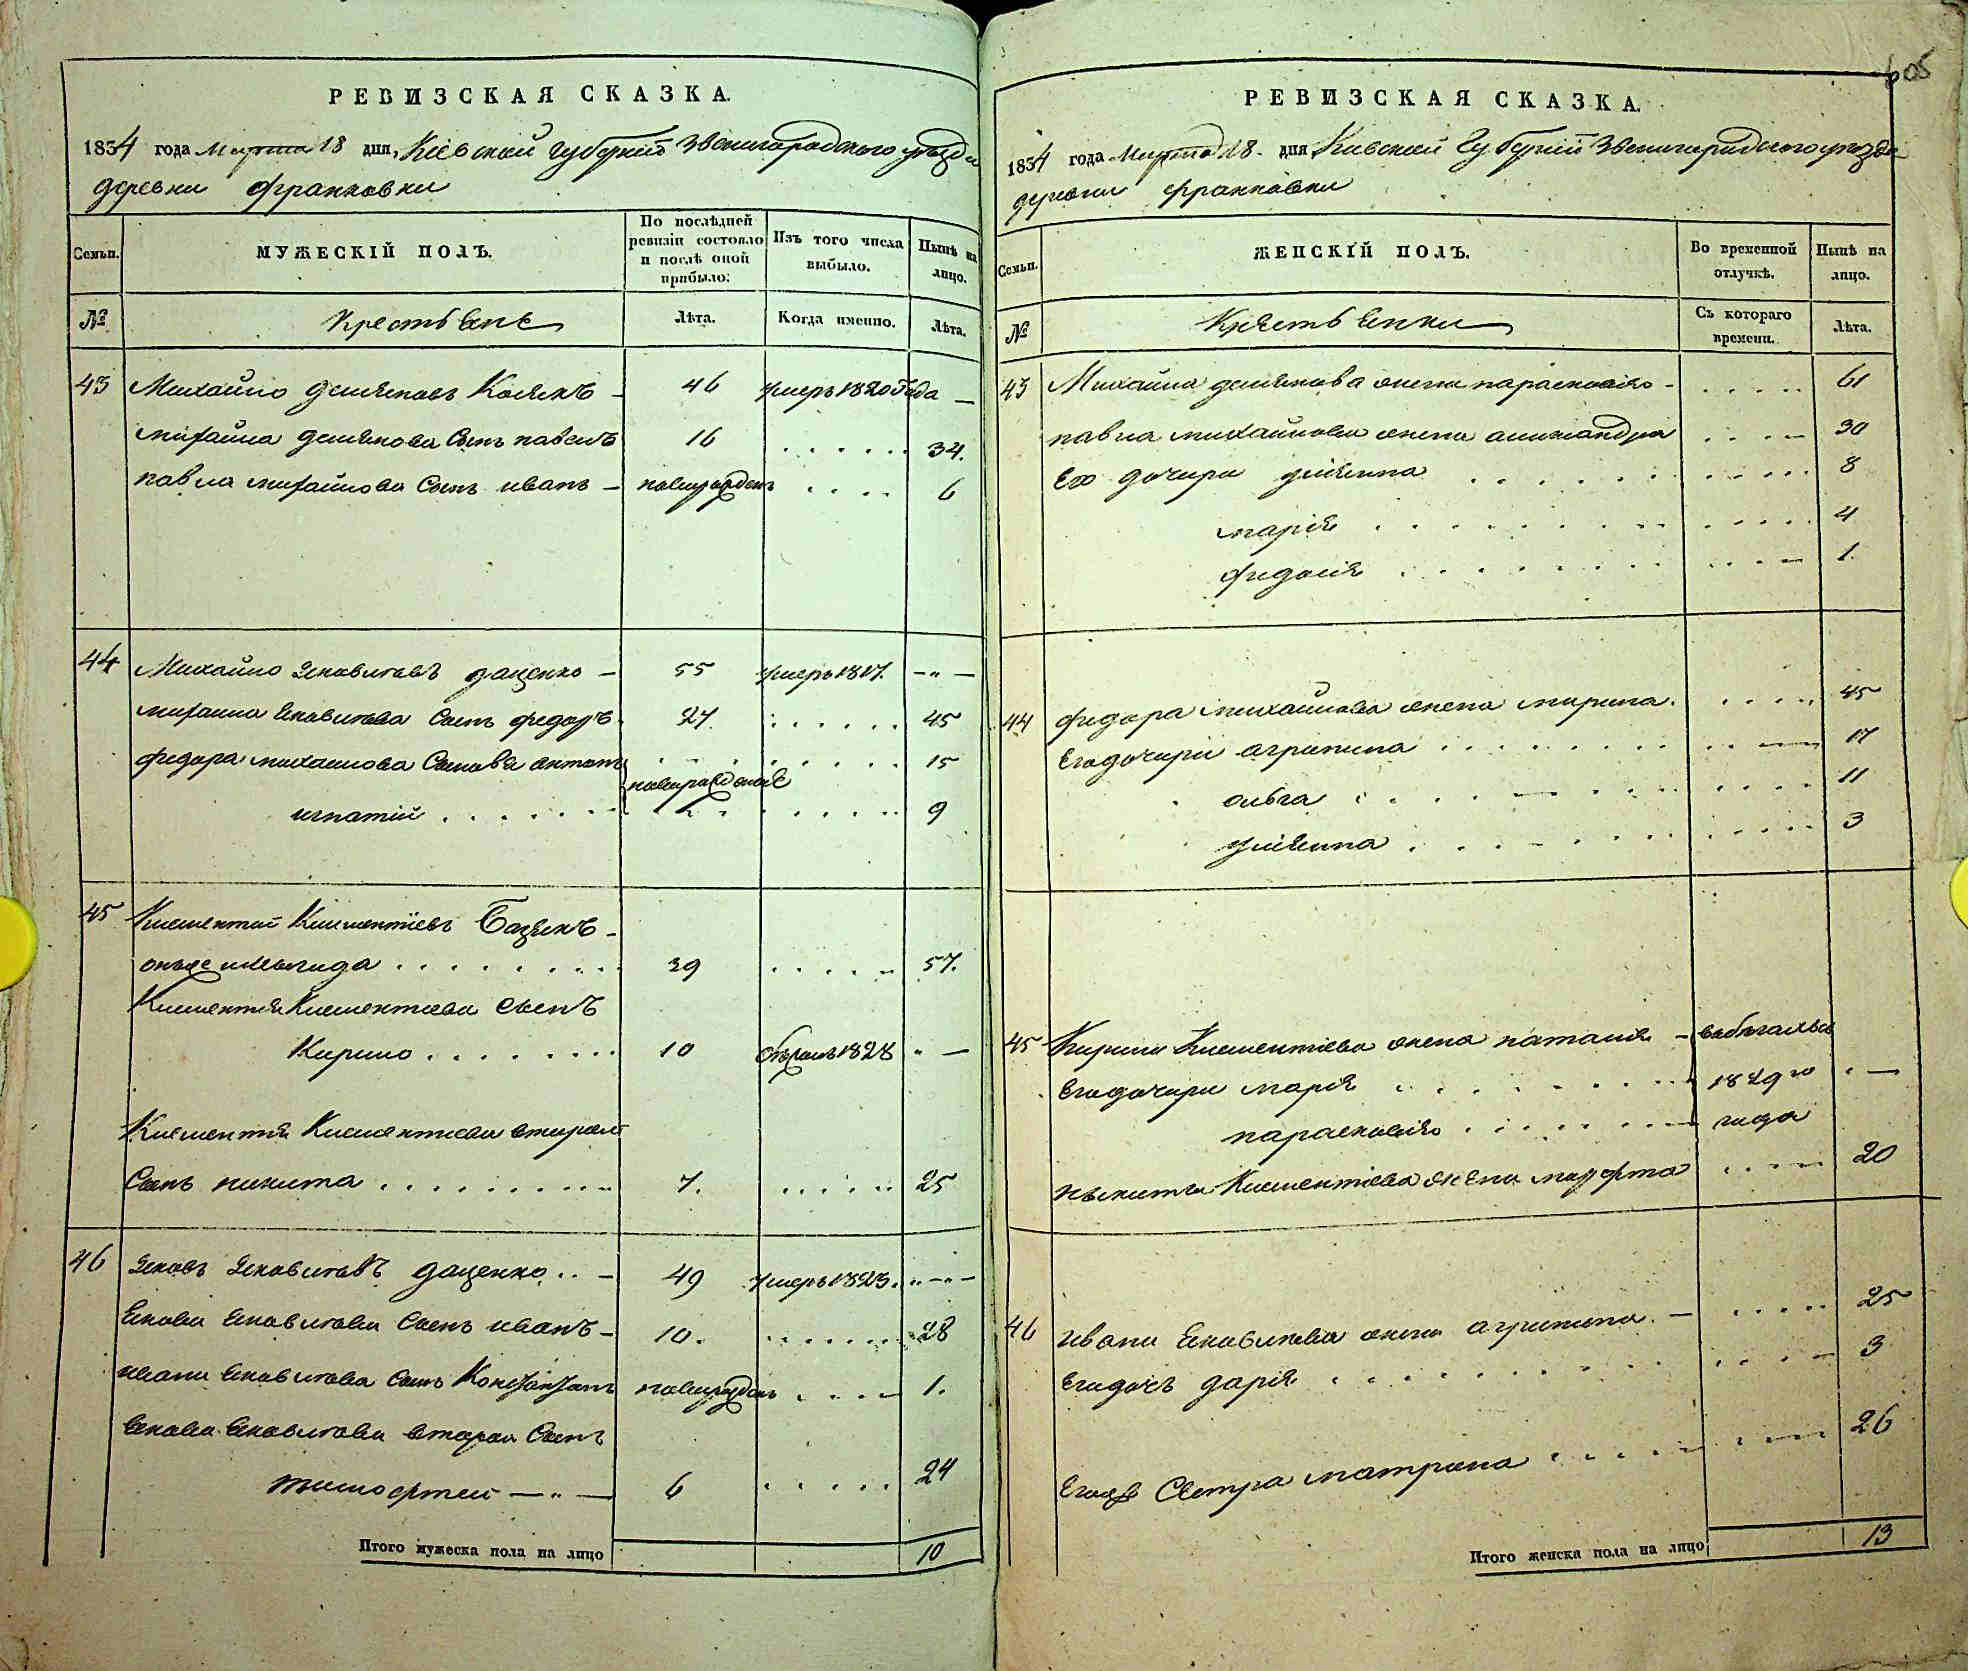 605
РЕВИЗСКАЯ СКАЗКА.
1834 года Марта 18 дня, Кіевской Губерніи Звенигородского уезда
деревни Франковки
Семьи. МУЖЕСКІЙ ПОЛЪ. По послѣдней ревизіи состояло и послѣ оной прибыло. Изъ того числа выбыло. Нынѣ на лицо.
№ Крестьяне Лѣта. Когда именно. Лѣта.
43 Михайло Демяновъ 46 умеръ 1820 года —
михайла демянова Сынъ павелъ 16 34.
павла михайлова Сынъ иванъ — новорожденъ 6
44 Михайло Яковлевъ даценко — 55 умеръ 1817. — " —
михайла Яковлева Сынъ федоръ 27. 45
федора михайлова Сыновя антонъ 15
новорожденые
игнатій 9
45 Климентій Климентіевъ
39 57.
Климентія Климентіева сынъ
Кирило 10 1828 " —
Климентія Климентіева вторый
Сынъ никита 7. 25
46 Яковъ Яковлевъ даценко — 49 умеръ 1823. " — " —
Якова Яковлева Сынъ иванъ — 10. 28
ивана Яковлева Сынъ Константинъ новорожденъ 1.
Якова Яковлева вторый Сынъ
тимофтей — " — 6 24
Итого мужеска пола на лицо 10
РЕВИЗСКАЯ СКАЗКА.
1834 года Марта 18. дня Кіевской Губерніи Звенигородского уезда
деревни Франковки
Семьи. ЖЕНСКІЙ ПОЛЪ. Во временной отлучкѣ. Нынѣ на лицо.
№ Крестьянки Съ котораго времени. Лѣта.
43 Михайла демянова жена парасковія - 61
павла михайлова жена александра 30
Его дочери уліянна 8
марія 4
федосія 1.
44 федора михайлова жена марина. 45
Его дочери агрипина 17
ольга 11
уліянна 3
45 Кирила Климентіева жена наталія — 
Его дочери марія 1829го " —
парасковія года
никиты Климентіева жена марфта 20
46 ивана Яковлева жена агрипина. — 25
Его дочь дарія 3
Сестра матрона 26
Итого женска пола на лицо 13